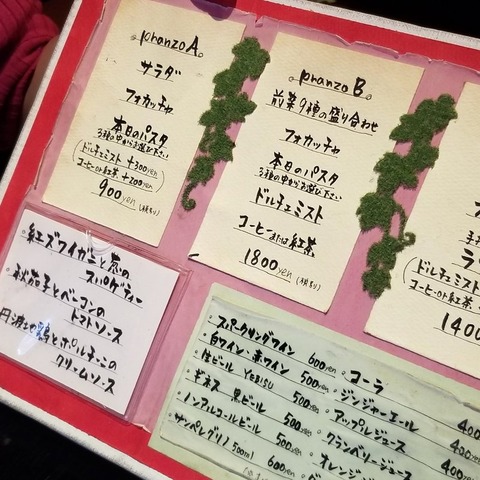 pranzo A
サラダ
フォカッチャ
本日のパスタ
3種の中からお選び下さい
(ドルチェミスト +300yen
コーヒーor紅茶 +200yen)
900yen (税込)
pranzo B
前菜9種の盛り合わせ
フォカッチャ
本日のパスタ
3種の中からお選び下さい
ドルチェミスト
コーヒーまたは紅茶
1800yen (税込)
(ドルチェミスト
コーヒーor紅茶
1400
・紅ズワイガニと
スパゲティー
・秋茄子とベーコンの
トマトソース
丹波地鶏とポルチーニの
クリームソース
・スパークリングワイン 600yen
・白ワイン・赤ワイン 500yen
・生ビール YEBISU 500yen
・ギネス 黒ビール 500yen
・ノンアルコールビール 500yen
サンペレグリノ 500ml 600yen
・コーラ 400
・ジンジャーエール 400
・アップルジュース 400yen
・クランベリージュース 400yen
・オレンジ